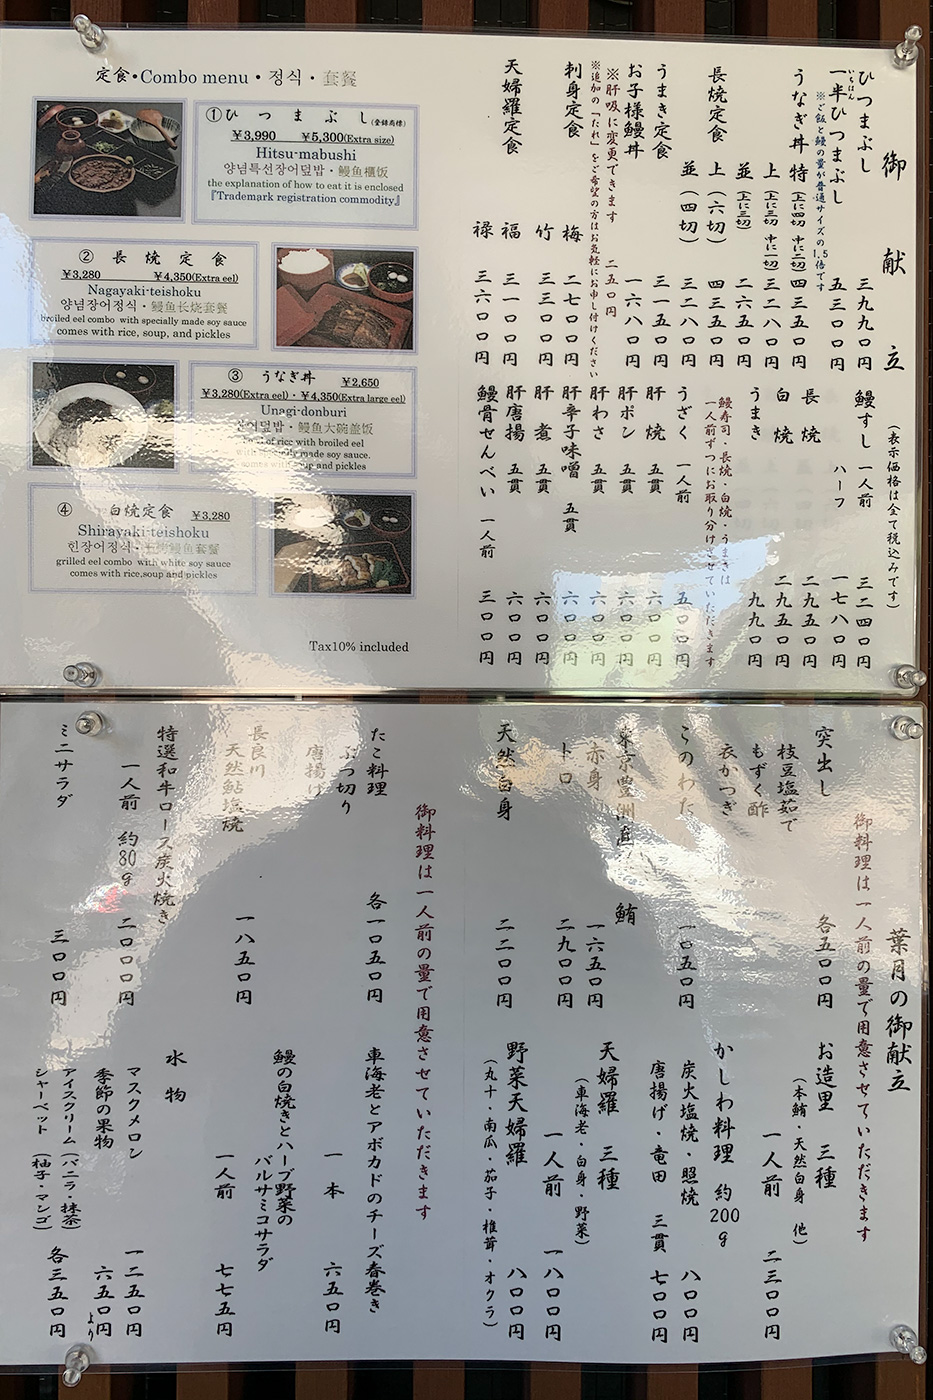 定食・Combo menu・정식・套餐
①ひつまぶし(登録商標)
¥3,990 ¥5,300(Extra size)
Hitsu-mabushi
양념특선장어덮밥・鳗鱼櫃饭
the explanation of how to eat it is enclosed
『Trademark registration commodity』
② 長焼定食
¥3,280 ¥4,350(Extra eel)
Nagayaki-teishoku
양념장어정식・鳗鱼长烧套餐
broiled eel combo with specially made soy sauce
comes with rice, soup, and pickles
③ うなぎ丼 ¥2,650
¥3,280(Extra eel)・¥4,350(Extra large eel)
Unagi-donburi
장어덮밥・鳗鱼大碗盖饭
bowl of rice with broiled eel
with specially made soy sauce.
comes with soup and pickles
④ 白焼定食 ¥3,280
Shirayaki-teishoku
흰장어정식・白烤鳗鱼套餐
grilled eel combo with white soy sauce
comes with rice,soup and pickles
Tax10% included
御献立
(表示価格は全て税込みです)
ひつまぶし 三九九〇円
一半ひつまぶし 五三〇〇円
いちはん
※ご飯と鰻の量が普通サイズの1.5倍です
うなぎ丼 特(上に四切 中に二切) 四三五〇円
上(上に三切 中に一切) 三二八〇円
並(上に三切) 二六五〇円
長焼定食 上(六切) 四三五〇円
並(四切) 三二八〇円
うまき定食 三一五〇円
お子様鰻丼 一六八〇円
※肝吸に変更できます 二五〇円
※追加の「たれ」をご希望の方はお気軽にお申し付けください
刺身定食 梅 二七〇〇円
竹 三三〇〇円
天婦羅定食 福 三一〇〇円
禄 三六〇〇円
鰻すし 一人前 三二四〇円
ハーフ 一七八〇円
長焼 二九五〇円
白焼 二九五〇円
うまき 九九〇円
鰻寿司・長焼・白焼・うまきは
一人前ずつにお取り分けさせていただきます
うざく 一人前 五〇〇円
肝焼 五貫 六〇〇円
肝ポン 五貫 六〇〇円
肝わさ 五貫 六〇〇円
肝辛子味噌 五貫 六〇〇円
肝煮 五貫 六〇〇円
肝唐揚 五貫 六〇〇円
鰻骨せんべい 一人前 三〇〇円
葉月の御献立
御料理は一人前の量で用意させていただきます
突出し 各五〇〇円
枝豆塩茹で
もずく酢
衣かつぎ
このわた 一〇五〇円
東京豊洲直 鮪
赤身 一六五〇円
トロ 二九〇〇円
天然白身 二二〇〇円
お造里 三種
(本鮪・天然白身 他)
一人前 二三〇〇円
かしわ料理 約200g
炭火塩焼・照焼 八〇〇円
唐揚げ・竜田 三貫 七〇〇円
天婦羅 三種
(車海老・白身・野菜)
一人前 一八〇〇円
野菜天婦羅 八〇〇円
(丸十・南瓜・茄子・椎茸・オクラ)
御料理は一人前の量で用意させていただきます
たこ料理 各一〇五〇円
ぶつ切り
唐揚げ
長良川
天然鮎塩焼 一八五〇円
特選和牛ロース炭火焼き
一人前 約80g 二〇〇〇円
ミニサラダ 三〇〇円
車海老とアボカドのチーズ春巻き
一本 六五〇円
鰻の白焼きとハーブ野菜の
バルサミコサラダ
一人前 七七五円
水物
マスクメロン 一二五〇円
季節の果物 六五〇円より
アイスクリーム(バニラ・抹茶)
シャーベット(柚子・マンゴ) 各三五〇円